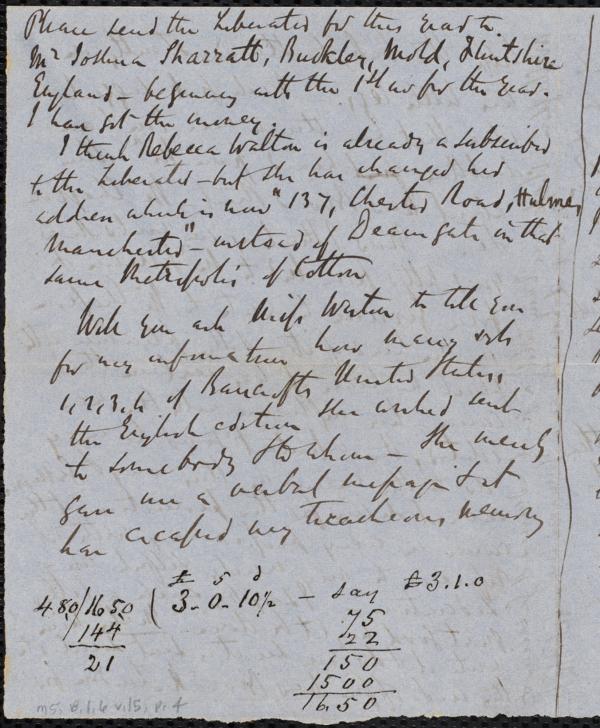 Please send the Liberator for this year to
Mr Joshua Sharratt, Buckley, Mold, Flintshire
England - beginning with the 1st no for the year.
I have got the money.
I think Rebecca Walton is already a subscriber
to the Liberator - but she has changed her
address which is now "137, Chester Road, Hulme,
Manchester" - instead of Deansgate in that
same Metropolis of Cotton
Will you ask Miss Weston to tell you
for my information how many sets
of Bancrofts United States,
1, 2, 3, 4 the English edition she wished sent
to somebody & to whom - She merely
gave me a verbal message & it
has escaped my treacherous memory
£ s d
480/1650 ( 3-0-10½ - say £3.1.0
144
21
75
22
150
1500
1650
ms. B.1.6 v.15, p. 4